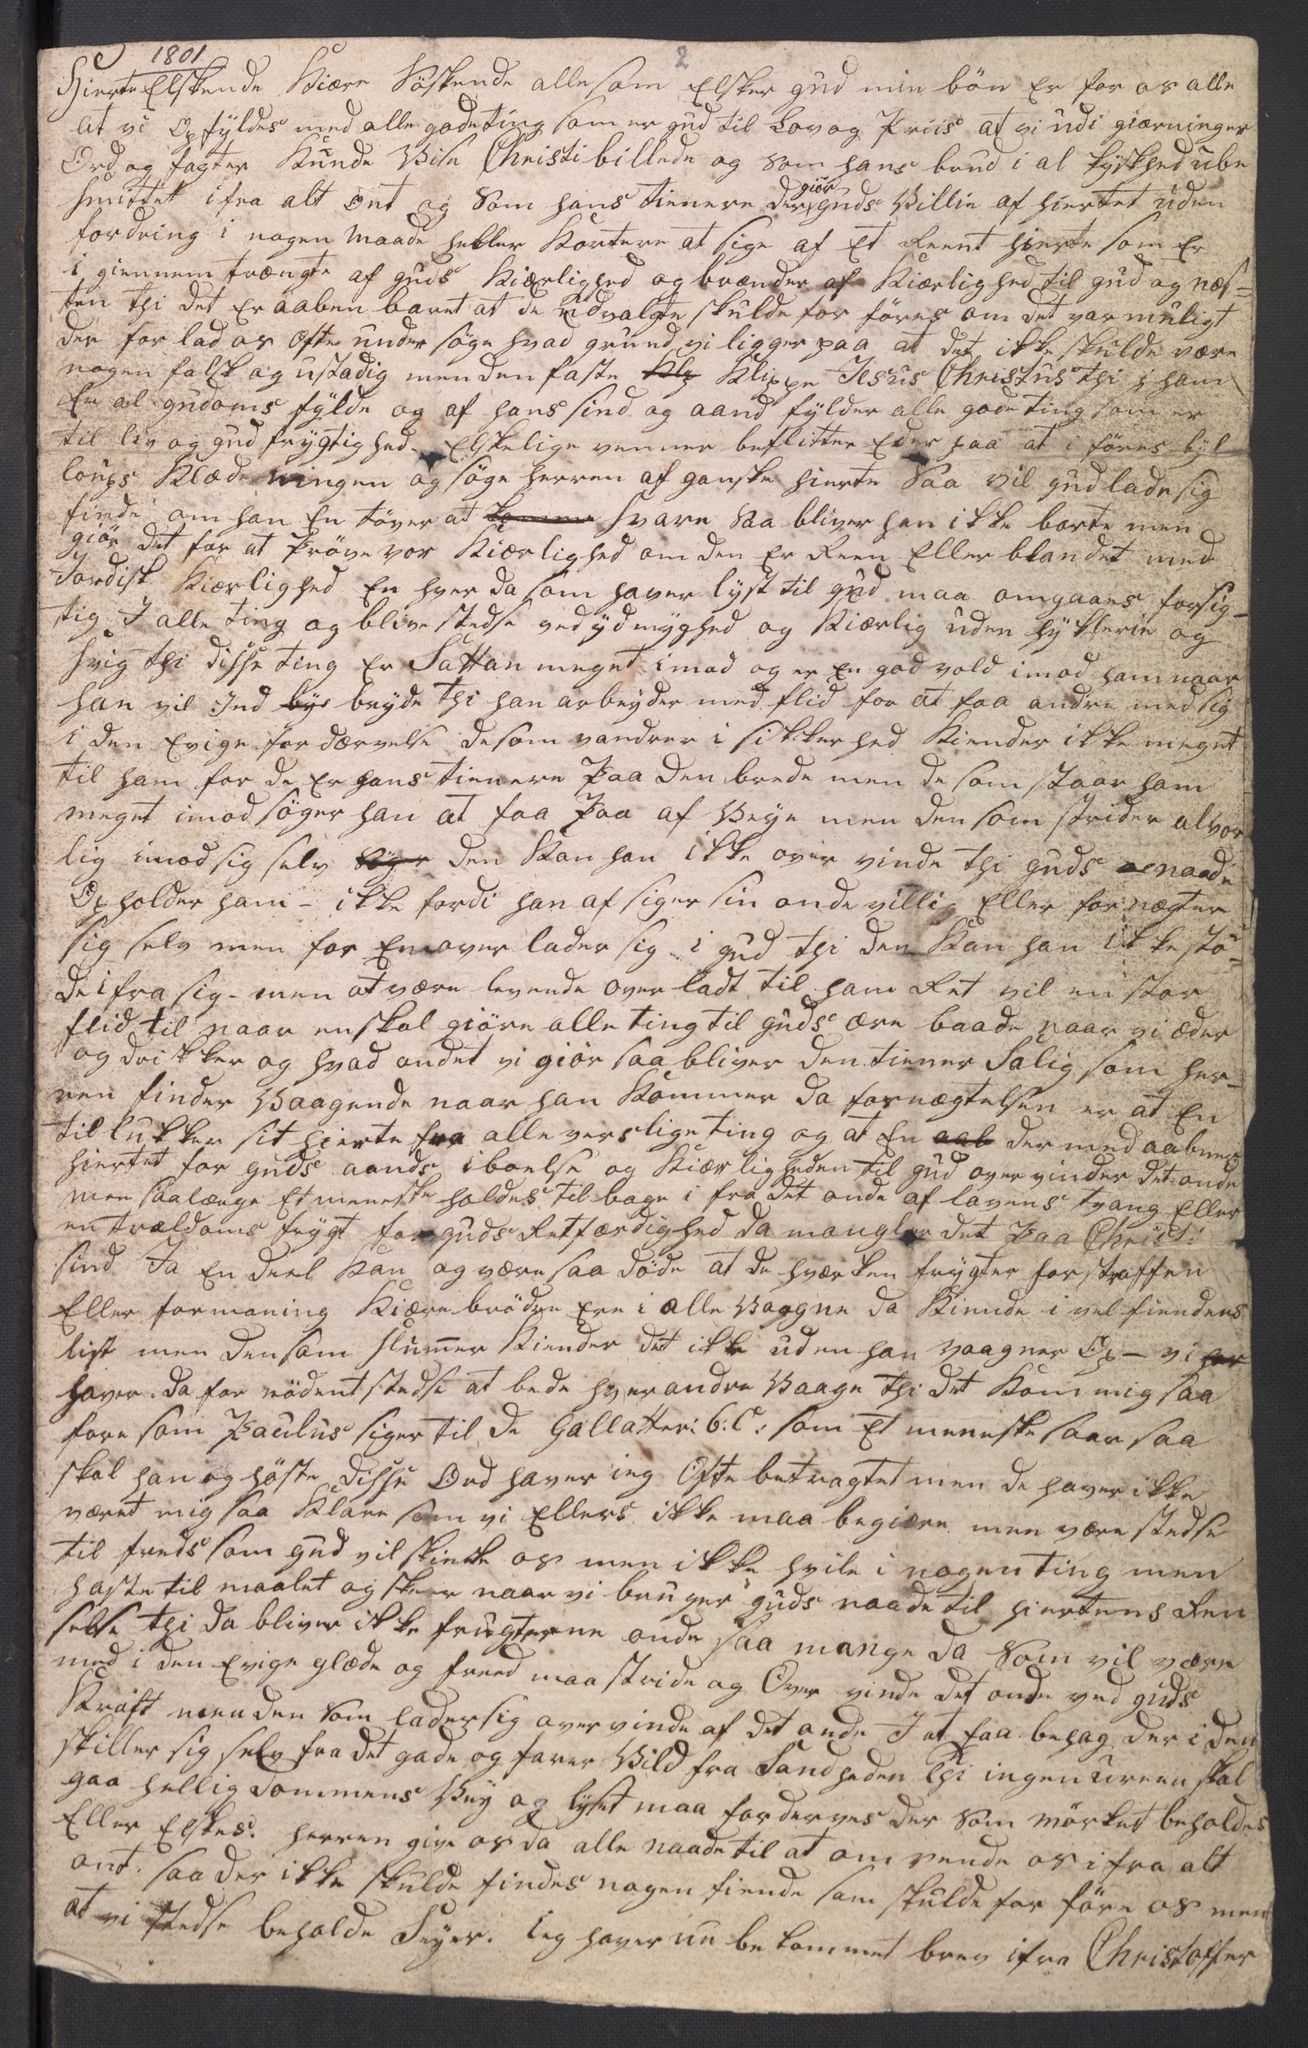 1801
2
Hierte Elskende Kiære Söskende alle som Elsker gud min bön Er for os alle
at vi Opfÿldes med alle gode ting som er gud til Lov og Priis at vi udi gierninger
Ord og fagter Kunde Vise Christi billede og som hans brud i al Kyskhed ube
smittet ifra alt ont og Som hans tienere der giör guds Villie af hiertet uden
fordring i nogen maade heller Kortere at sige af Et Reent hierte som Er
igiennem trængte af guds Kiærlighed og brænder af Kiærlighed til gud og næs=
ten thi det Er aabenbaret at de udvalgte skulde forföres om det var muligt
der for lad os ofte under söge hvad grund vi ligger paa at det ikke skulde være
nogen falsk og ustadig men den faste Klip Klippe Jesus Christus thi i ham
Er al gudoms fÿlde og af hans sind og aand fÿlder alle gode ting som er
til liv og gudfrygtighed. Elskelige venner beflitter Eder paa at iföres bÿl
loups Klædningen og söge herren af ganske hierte saa vil gud lade sig
finde om han En töver at komme Svare saa bliver han ikke borte men
giör det for at Pröve vor Kiærlighed om den Er Reen Eller blandet med
Jordisk Kiærlighed En hver da som haver lyst til gud maa omgaaes forsig-
tig I alle ting og blive stedse ved ÿdmÿghed og Kiærlig uden hÿklerie og
svig thi disse ting Er Sattan meget imod og er En god vold imod ham naar
han vil Ind bÿe brÿde thi han arbeyder med flid for at faa andre med sig
i den Evige fordærvelse de som vandrer i sikkerhed Kiender ikke meget
til ham for de Er hans tienere Paa den brede men de som staar ham
meget imod söger han at faa Paa af Veye men den som strider alvor
lig imod sig selv den Kan han ikke over vinde thi guds naade
Opholder ham - ikke fordi han af siger sin onde villie Eller fornægter
sig selv men for En over lader sig i gud thi den Kan han ikke stö-
de ifra sig - men at være levende over ladt til ham Ret vil en stor
flid til naar en skal giöre alle ting til guds ære baade naar vi æder
og drikker og hvad andet vi giör saa bliver den tiener Salig som her-
ren finder Vaagende naar han Kommer da fornægtelsen er at En
til lukker sit hierte fra alle verslige ting og at En der med aabner
hiertet for guds aands iboelse og Kiærligheden til gud over vinder det onde
men saalænge Et meneske holdes til bage i fra det onde af lovens tvang Eller
en trældoms frygt for guds Retfærdighed da mangler det Paa Christi
sind Ja En deel Kan og være saa döde at de hverken frygter for straffen
Eller formaning Kiære brödre Ere i alle Vaagne da Kiende i vel fiendens
list men den som slumer Kiender det ikke uden han vaagner Op - vi
haver da for nödent stedse at bede hverandre Vaage thi det Kom mig saa
fore som Paulus siger til de Gallatter: 6: C: som Et meneske saar saa
skal han og höste disse Ord haver ieg Ofte betragtet men de haver ikke
været mig saa Klare som vi Ellers ikke maa begiære men være stedse
til freds som gud vil skienke os men ikke hvile i nogen ting men
haste til maalet og skeer naar vi bruger guds naade til hiertens Ren
selse thi da bliver ikke frugterne onde saa mange da som vil være
med i den Evige glæde og freed maa stride og Over vinde det onde ved guds
Kraft men den som lader sig over vinde af det onde I at faa behag der i den
skiller sig selv fra det gode og farer Vild fra Sandheden thi ingen ureen skal
gaa hellig dommens Vey og lÿset maa forderves der som mörket beholdes
Eller Elskes. herren give os da alle naade til at om vende os i fra alt
ont. saa der ikke skulde findes nogen fiende som skulde for före os men
at vi stedse beholde Seyer. ieg haver nu bekommet brev ifra Christoffer